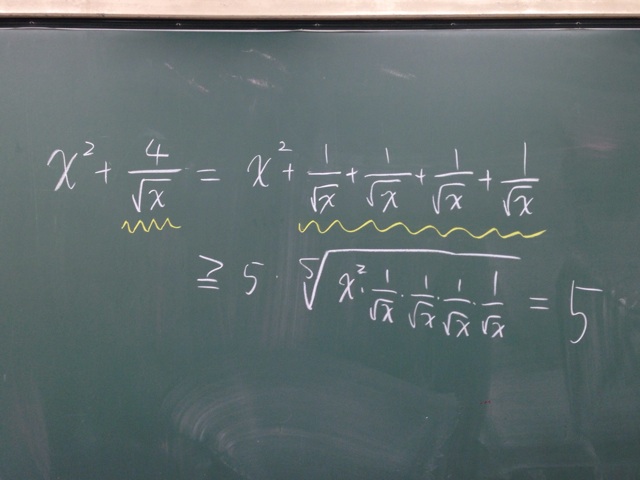 x² + 4/√x = x² + 1/√x + 1/√x + 1/√x + 1/√x
≧ 5 · ⁵√(x² · 1/√x · 1/√x · 1/√x · 1/√x) = 5